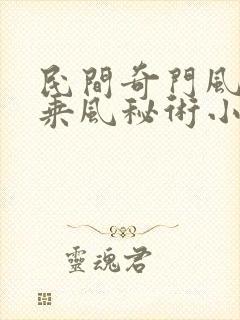 民間奇門風
乘風秘術小
靈魂君